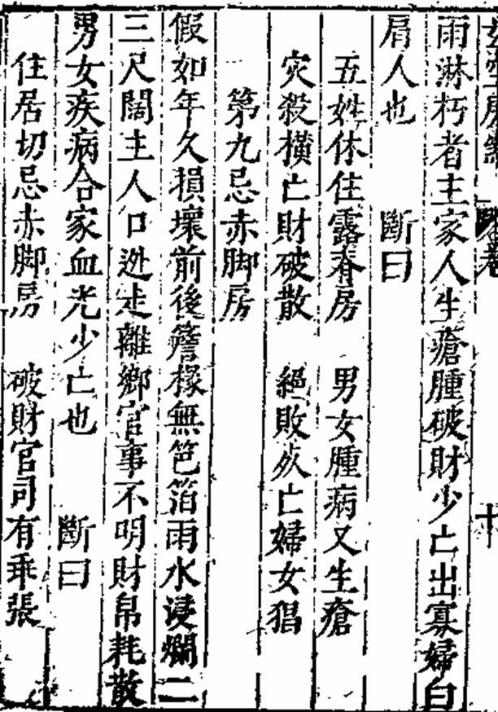 十
雨淋朽者主家人生瘡腫破財少亡出寡婦白
屑人也 斷曰
五姓休住露脊房 男女腫病又生瘡
灾殺橫亡財破散 絕敗夭亡婦女猖
第九忌赤脚房
假如年久損壞前後簷椽無笆箔雨水浸爛二
三尺闊主人口迯走離鄉官事不明財帛耗散
男女疾病合家血光少亡也 斷曰
住居切忌赤脚房 破財官司有乖張